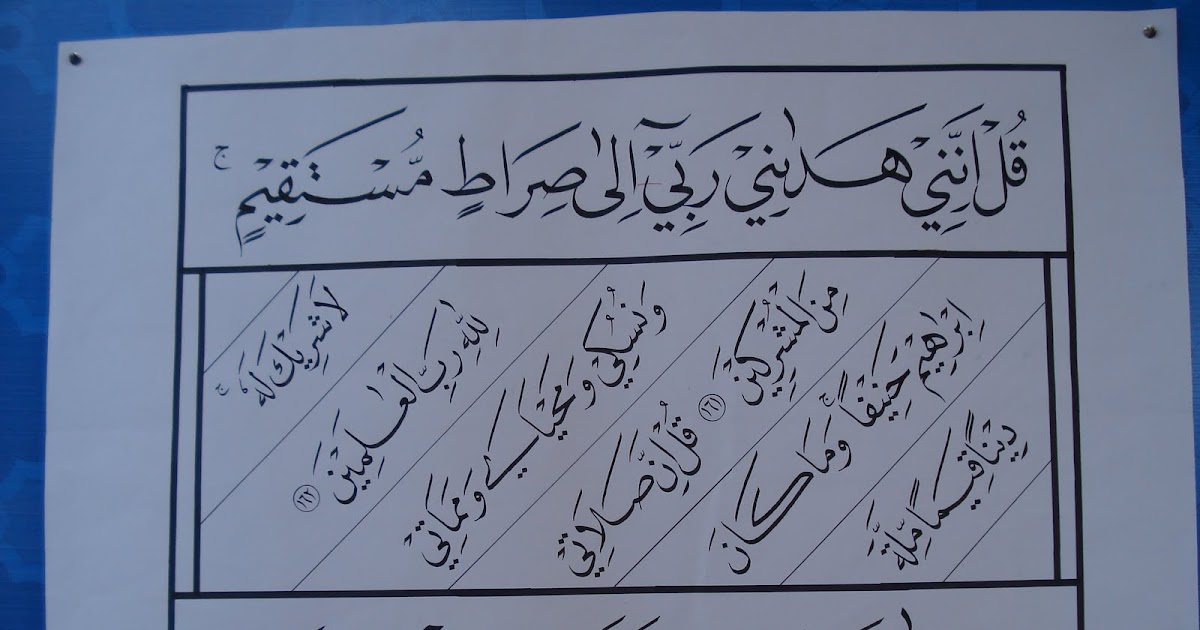 قُلْ اِنَّنِيْ هَدٰىنِيْ رَبِّيْٓ اِلٰى صِرَاطٍ مُّسْتَقِيْمٍ ۚ
دِيْنًا قِيَمًا مِّلَّةَ
اِبْرٰهِيْمَ حَنِيْفًا ۚ وَمَا كَانَ
مِنَ الْمُشْرِكِيْنَ ١٦١ قُلْ اِنَّ صَلَاتِيْ
وَنُسُكِيْ وَمَحْيَايَ وَمَمَاتِيْ
لِلّٰهِ رَبِّ الْعٰلَمِيْنَ ١٦٢
لَا شَرِيْكَ لَهٗ ۚ